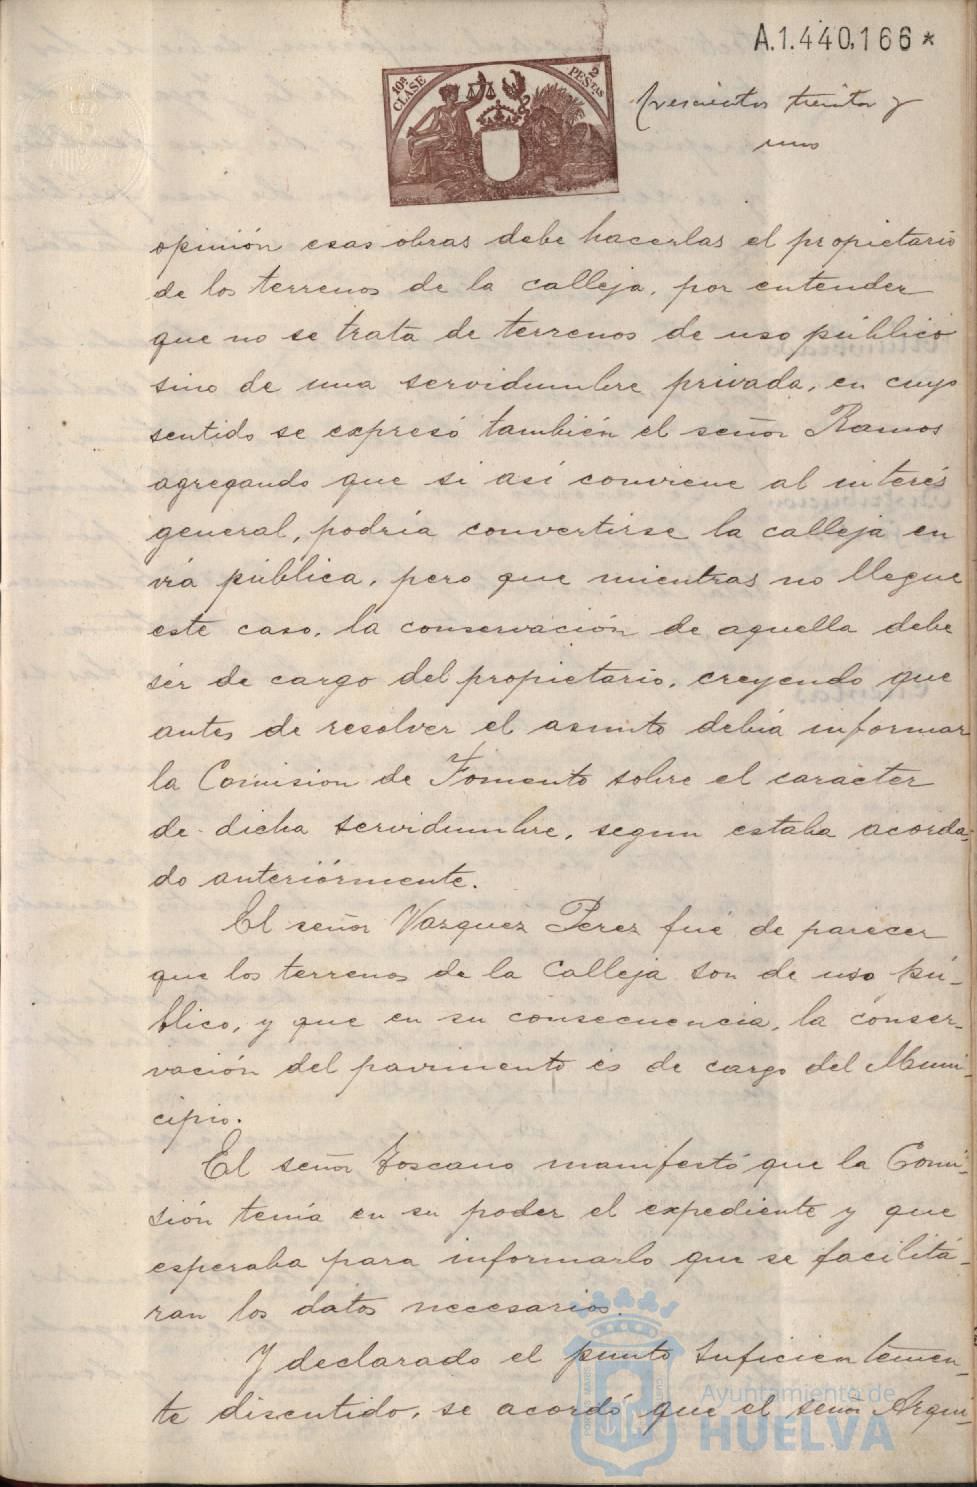 A.1.440.166*
10ª CLASE
2 PESTAS
trescientos treinta y
uno
opinión esas obras debe hacerlas el propietario
de los terrenos de la calleja, por entender
que no se trata de terrenos de uso público
sino de una servidumbre privada, en cuyo
sentido se expresó también el señor Ramos
agregando que si así conviene al interés
general, podría convertirse la calleja en
vía pública, pero que mientras no llegue
este caso, la conservación de aquella debe
sér de cargo del propietario, creyendo que
antes de resolver el asunto debía informar
la Comision de Fomento sobre el carácter
de dicha servidumbre, segun estaba acorda-
do anteriórmente.
El señor Vazquez Perez fué de parecer
que los terrenos de la Calleja son de uso pú-
blico, y que en su consecuencia, la conser-
vación del pavimento és de cargo del Muni-
cipio.
El señor Toscano manifestó que la Comi-
sión tenía en su poder el expediente y que
esperaba para informarlo que se facilitá-
ran los datos necesarios.
Y declarado el punto suficientemen-
te discutido, se acordó que el señor Arqui-
Ayuntamiento de
HUELVA